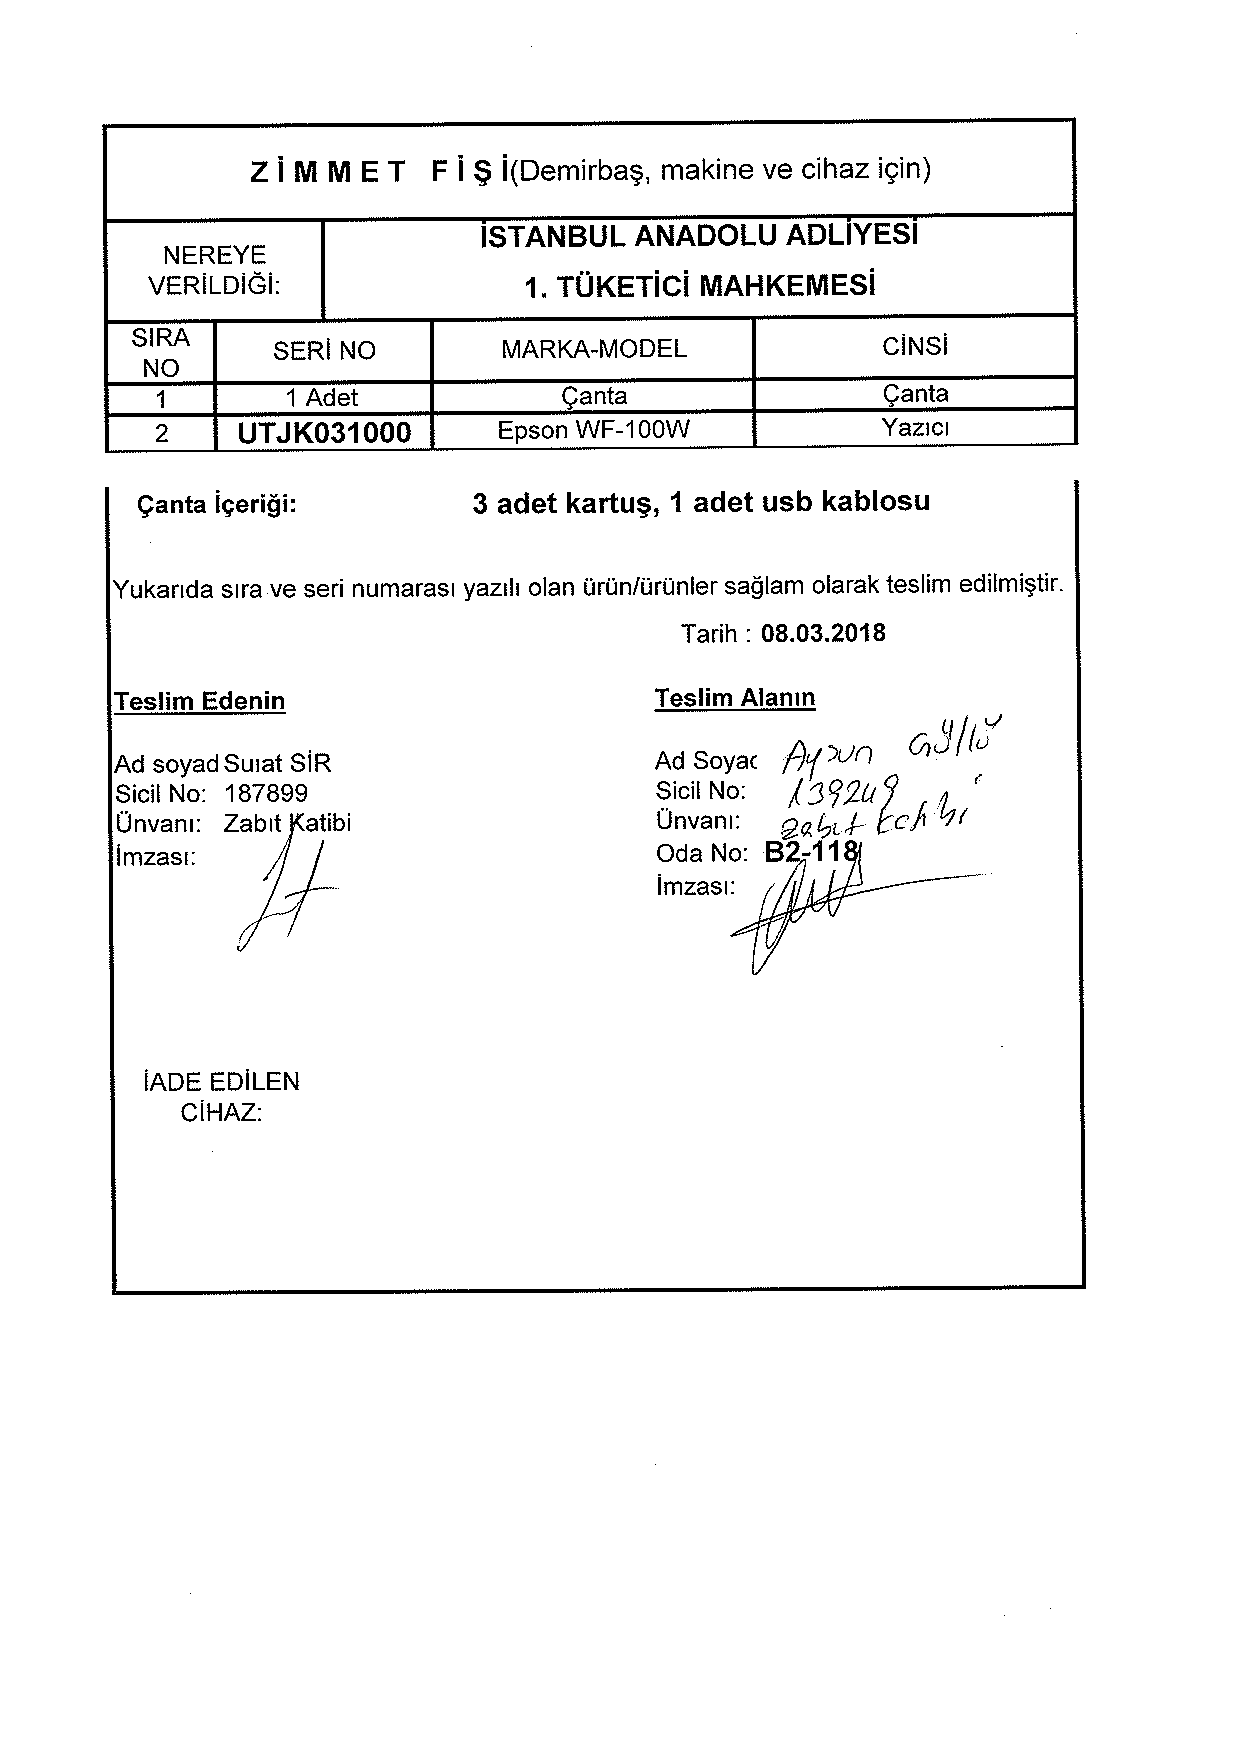 ZİMMET FİŞİ(Demirbaş, makine ve cihaz için)
NEREYE VERİLDİĞİ:
İSTANBUL ANADOLU ADLİYESİ
1. TÜKETİCİ MAHKEMESİ
SIRA NO SERİ NO MARKA-MODEL CİNSİ
1 1 Adet Çanta Çanta
2 UTJK031000 Epson WF-100W Yazıcı
Çanta İçeriği: 3 adet kartuş, 1 adet usb kablosu
Yukarıda sıra ve seri numarası yazılı olan ürün/ürünler sağlam olarak teslim edilmiştir.
Tarih : 08.03.2018
Teslim Edenin Teslim Alanın
Ad soyad Suıat SİR Ad Soyac Aysun
Sicil No: 187899 Sicil No: 139249
Ünvanı: Zabıt Katibi Ünvanı: Zabıt Katibi
İmzası: Oda No: B2-118
İmzası:
İADE EDİLEN
CİHAZ: